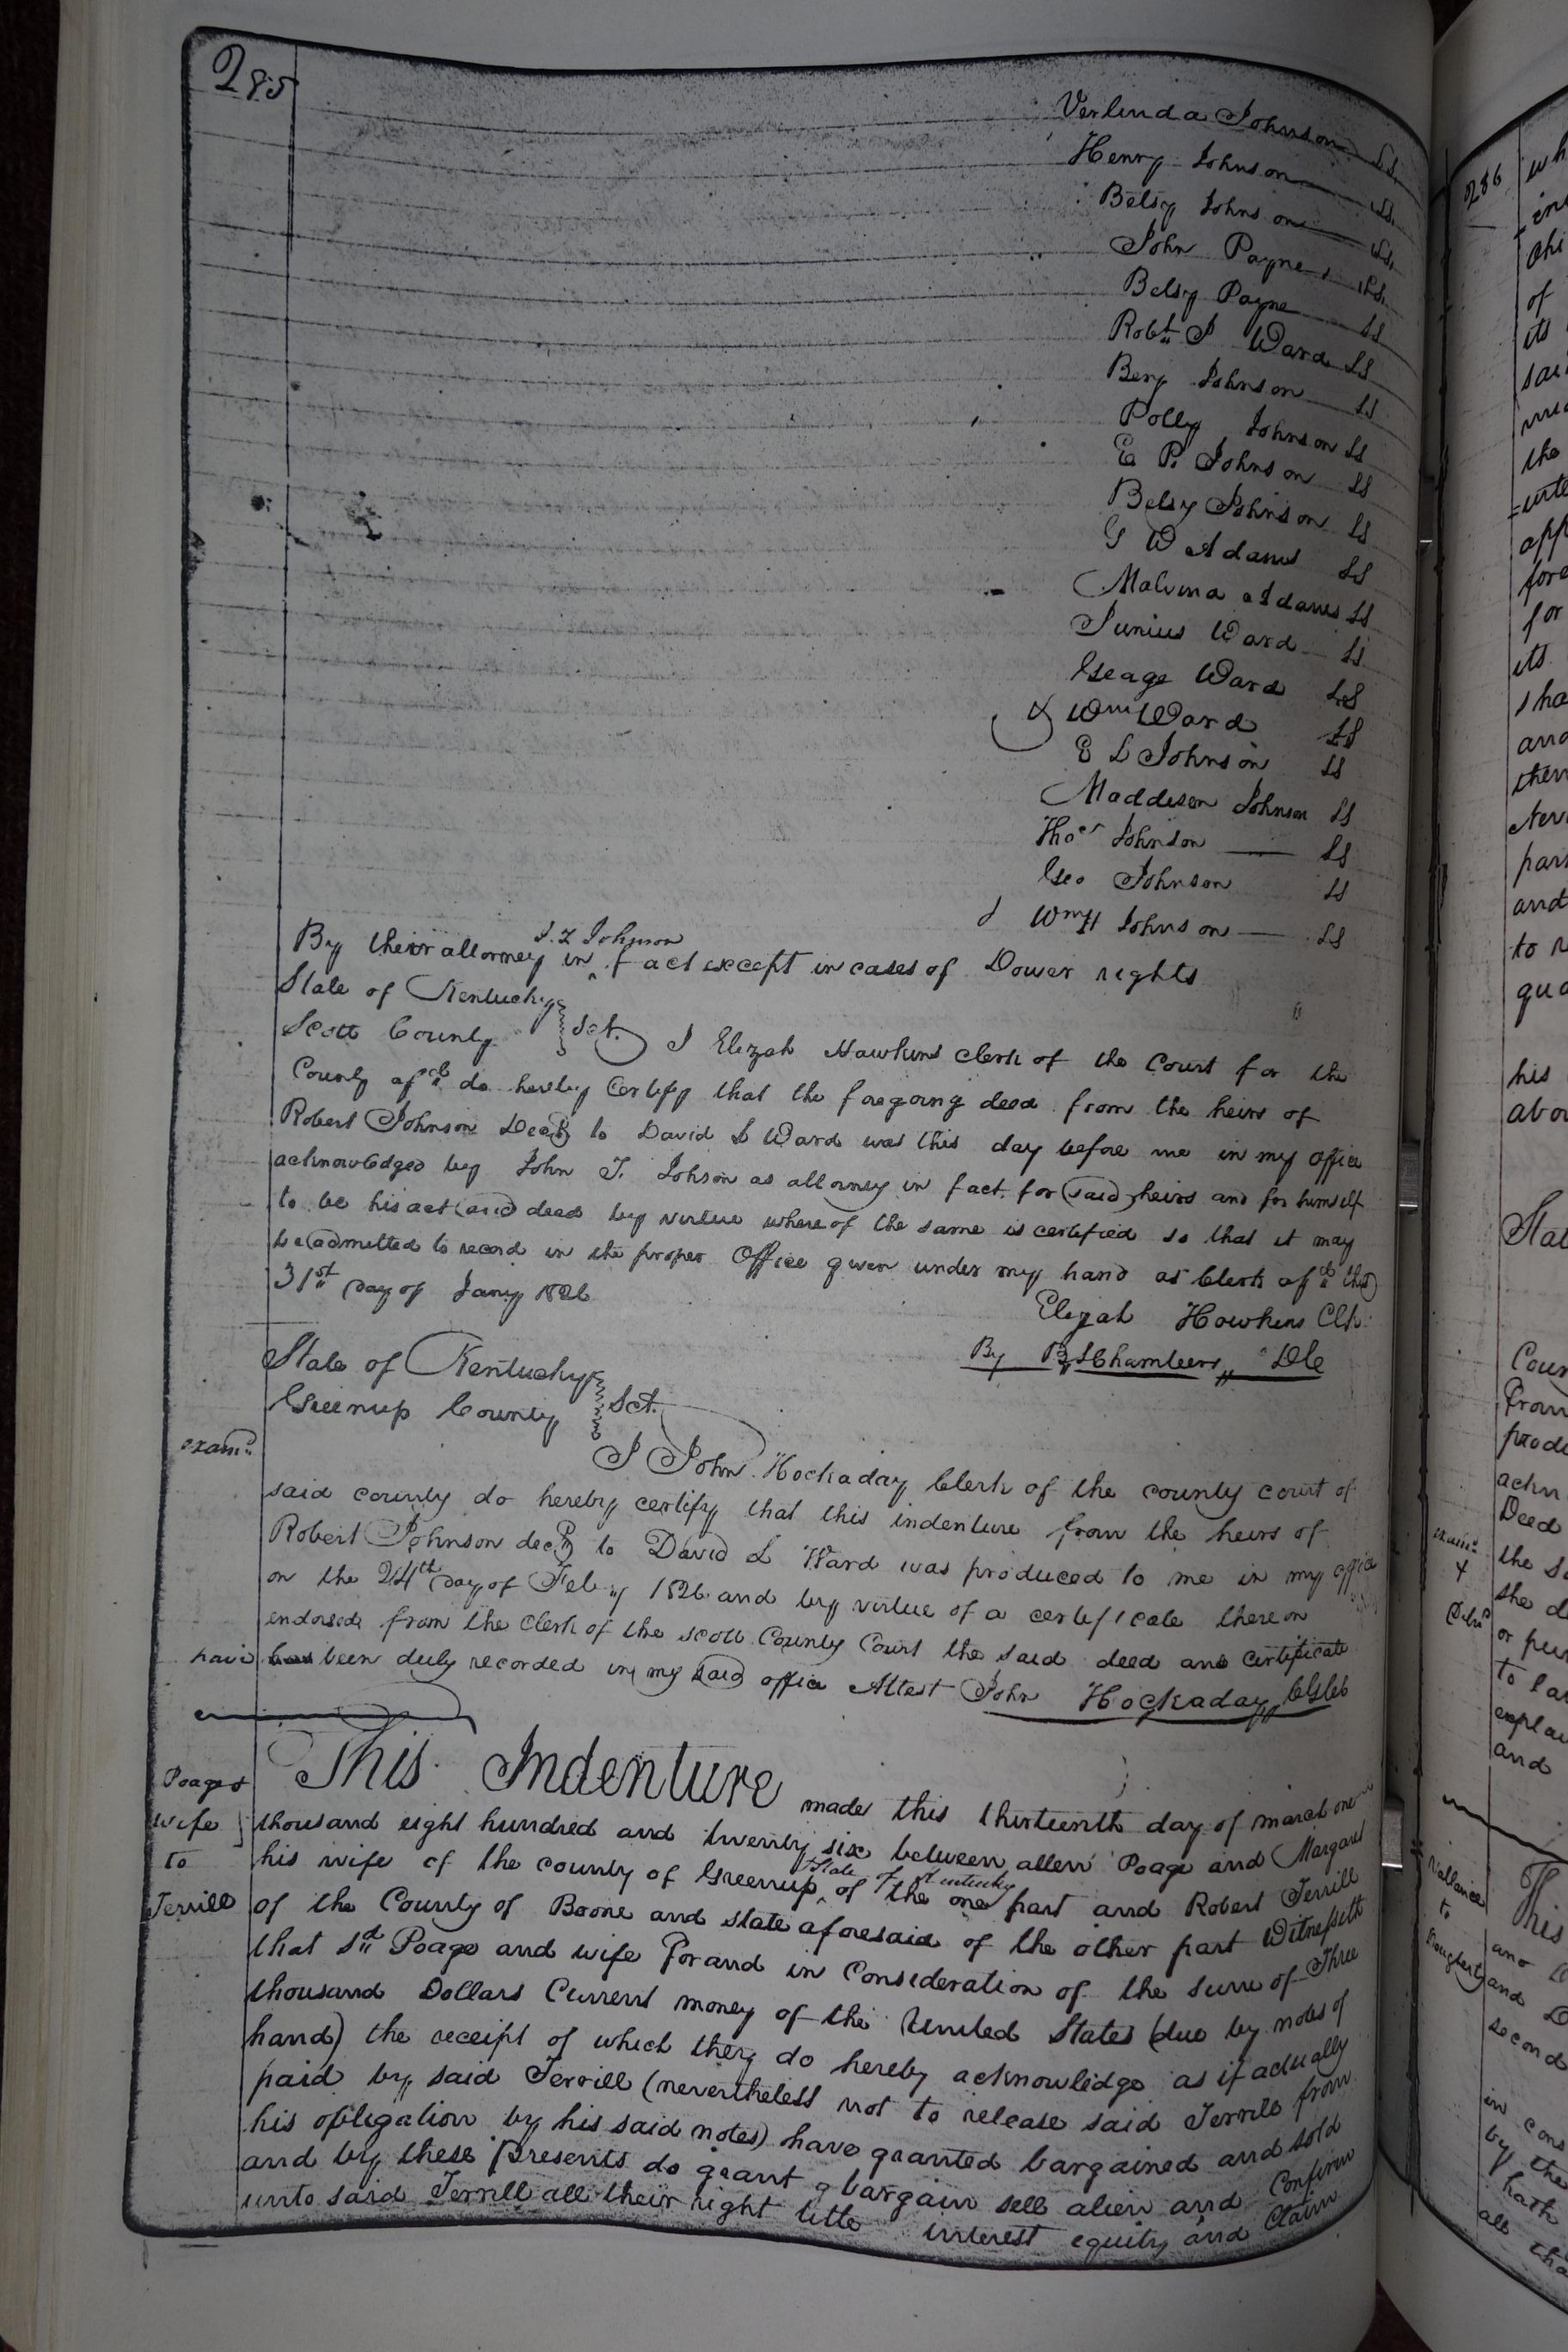 285
Verlinda Johnson LS
Henry Johnson LS
Betsy Johnson LS
John Payne LS
Betsy Payne LS
Robt J Ward LS
Benj Johnson LS
Polly Johnson LS
E P. Johnson LS
Betsy Johnson LS
G W Adams LS
Malvina Adams LS
Junius Ward LS
Geage Ward LS
& Wm Ward LS
E L Johnson LS
Maddison Johnson LS
Thos Johnson LS
Geo Johnson LS
& WmH Johnson LS
J. T Johnson
By their attorney in ^ fact except in cases of Dower rights
State of Kentucky
Scott County Sct. I Elizah Hawkins clerk of the Court for the
County afsd do hereby Certify that the foregoing deed from the heirs of
Robert Johnson Decd to David L Ward was this day before me in my office
acknowledged by John T. Johson as attorney in fact for said heirs and for himself
to be his act and deed by virtue where of the same is certified so that it may
be admitted to record in the proper Office given under my hand as Clerk afsd this
31st day of Jany 1826
Elizah Howkins Clk
By B Chambers DC
State of Kentucky
Greenup County Sct.
exam
I John Hockaday Clerk of the county court of
said county do hereby certify that this indenture from the heirs of
Robert Johnson decd to David L Ward was produced to me in my office
on the 24th day of Feby 1826 and by virtue of a certificate there on
endorsed from the Clerk of the scott County Court the said deed and certificate
have been duly recorded in my said office Attest John Hockaday CGCC
Poage &
wife
to
Terrill
This Indenture made this thirteenth day of march one
thousand eight hundred and twenty six between allen Poage and Margaret
his wife of the county of Greenup ^ State of Kentucky of the one part and Robert Terrill
of the County of Boone and state aforesaid of the other part Witnesseth
that sd Poage and wife For and in Consideration of the sum of Three
thousand Dollars Current money of the United States (due by notes of
hand) the receipt of which they do hereby acknowledge as if actually
paid by said Terrill (nevertheless not to release said Terrill from
his obligation by his said notes) have granted bargained and sold
and by these presents do grant bargain sell alien and Confirm
unto said Terrill all their right title interest equity and Claim
286
wh
of
its
the
app
fore
for
its
sha
and
them
part
and
to
his
abov
Stat
Coun
From
produ
ackn
Deed
the
she
or
to
expla
and
This
and
second
in cons
by the
hath
all tha